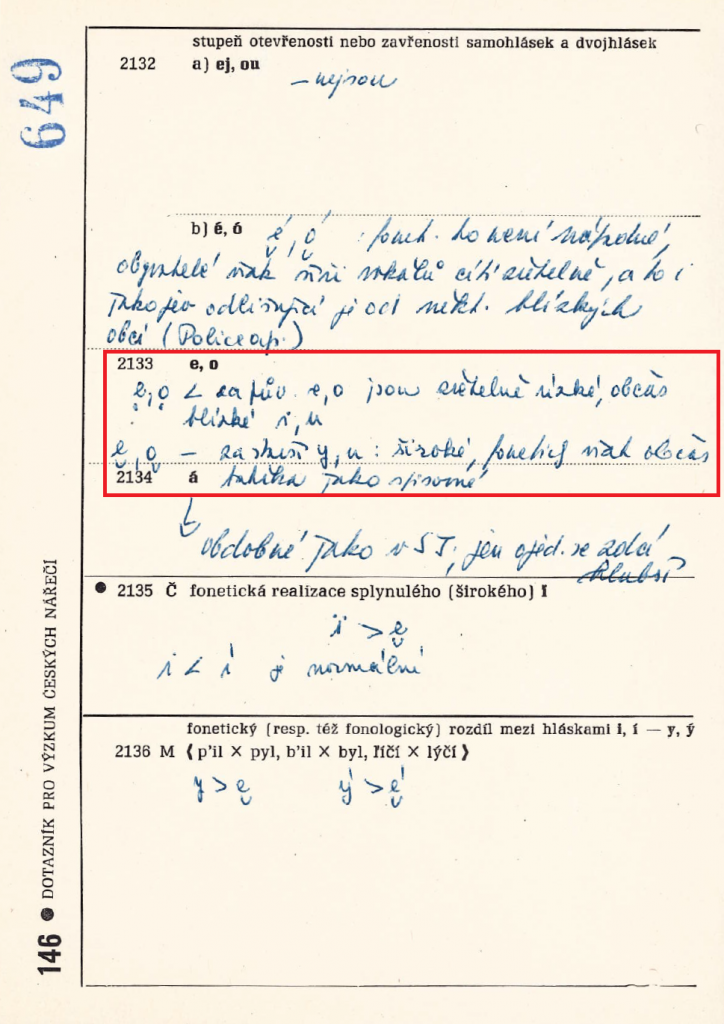 649
stupeň otevřenosti nebo zavřenosti samohlásek a dvojhlásek
2132 a) ej, ou
– nejsou
b) é, ó é̬, ó̬ : fonet. to není nápadné,
obyvatelé však cítí zřetelně, a to i
jako jev odlišující je od někt. blízkých
obcí (Police ap.)
2133 e, o
ẹ, ọ < za pův. e, o jsou zřetelně úzké, občas
blízké i, u
e̬, o̬ – za starší y, u : široké, foneticky však občas
2134 á takřka jako spisovné
obdobné jako v SJ, jen ojed. se zdá
hlubší
● 2135 Č fonetická realizace splynulého (širokého) I
i > e̬
i < í je normální
fonetický (resp. též fonologický) rozdíl mezi hláskami i, í — y, ý
2136 M (p'il × pyl, b'il × byl, říčí × lýčí)
y > e̬ ý > é̬
146 ● DOTAZNÍK PRO VÝZKUM ČESKÝCH NÁŘEČÍ